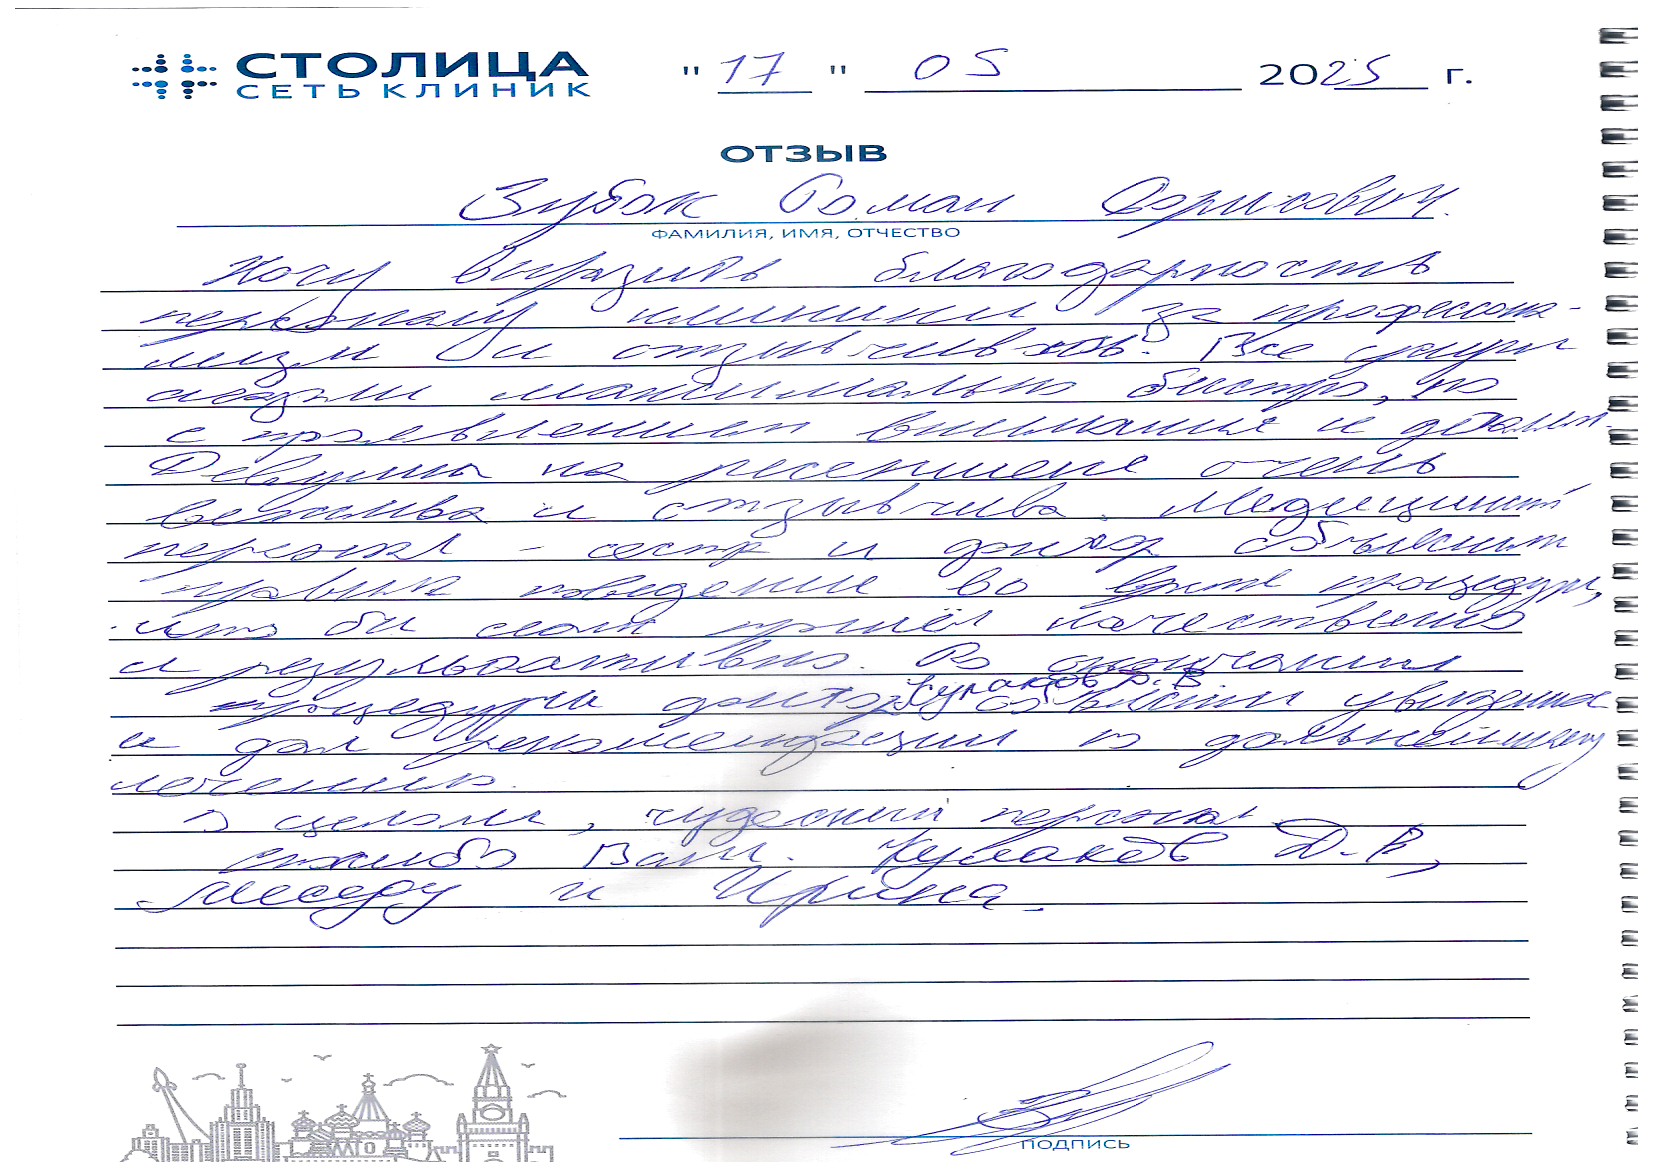 СТОЛИЦА
СЕТЬ КЛИНИК
"17" 05 2025 г.
ОТЗЫВ
Зубок Роман Борисович
ФАМИЛИЯ, ИМЯ, ОТЧЕСТВО
Хочу выразить благодарность
персоналу клиники за профессиона-
лизм и отзывчивость. Все услуги
оказали максимально быстро, но
с проявлением внимания к деталям.
Девушки на ресепшене очень
вежлива и отзывчива. Медицинский
персонал - сестра и доктор объяснили
правила поведения во время процедуры,
что бы сеанс прошёл качественно
и результативно. По окончании
Кулаков Д. В
процедуры доктор объяснил увиденное
и дал рекомендации по дальнейшему
лечению.
В целом, чудесный персонал.
спасибо Вам. Кулаков Д.В,
Меседу и Ирина.
ПОДПИСЬ